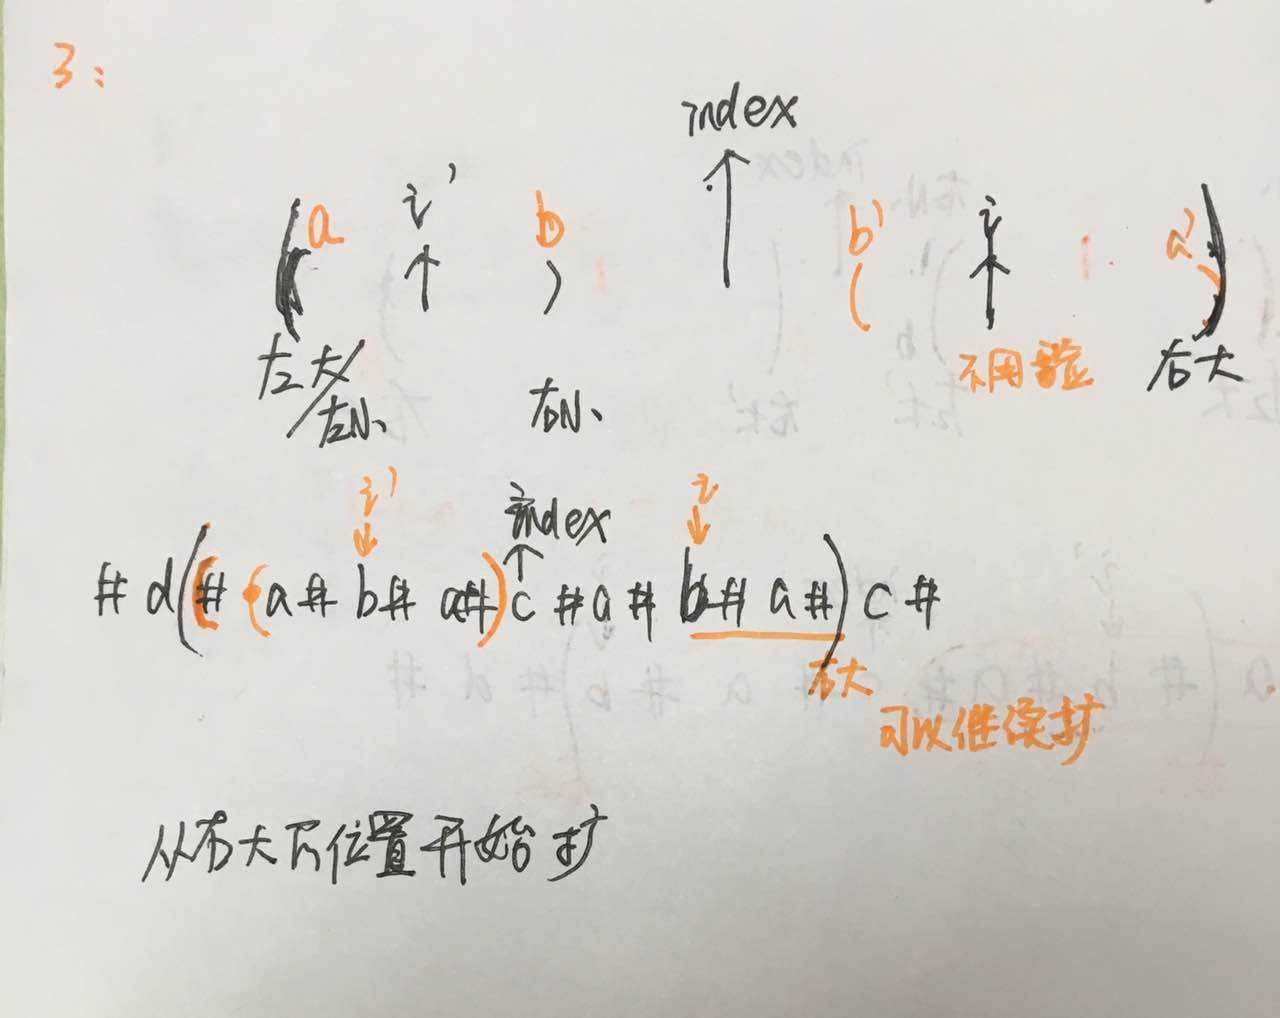 3:
index
a i' b b' i a'
不用验
左大/左小 右小 右大
i' index i
# d ( # ( a # b # a # ) c # a # b # a # ) c #
右大
可以继续扩
从右大下位置开始扩